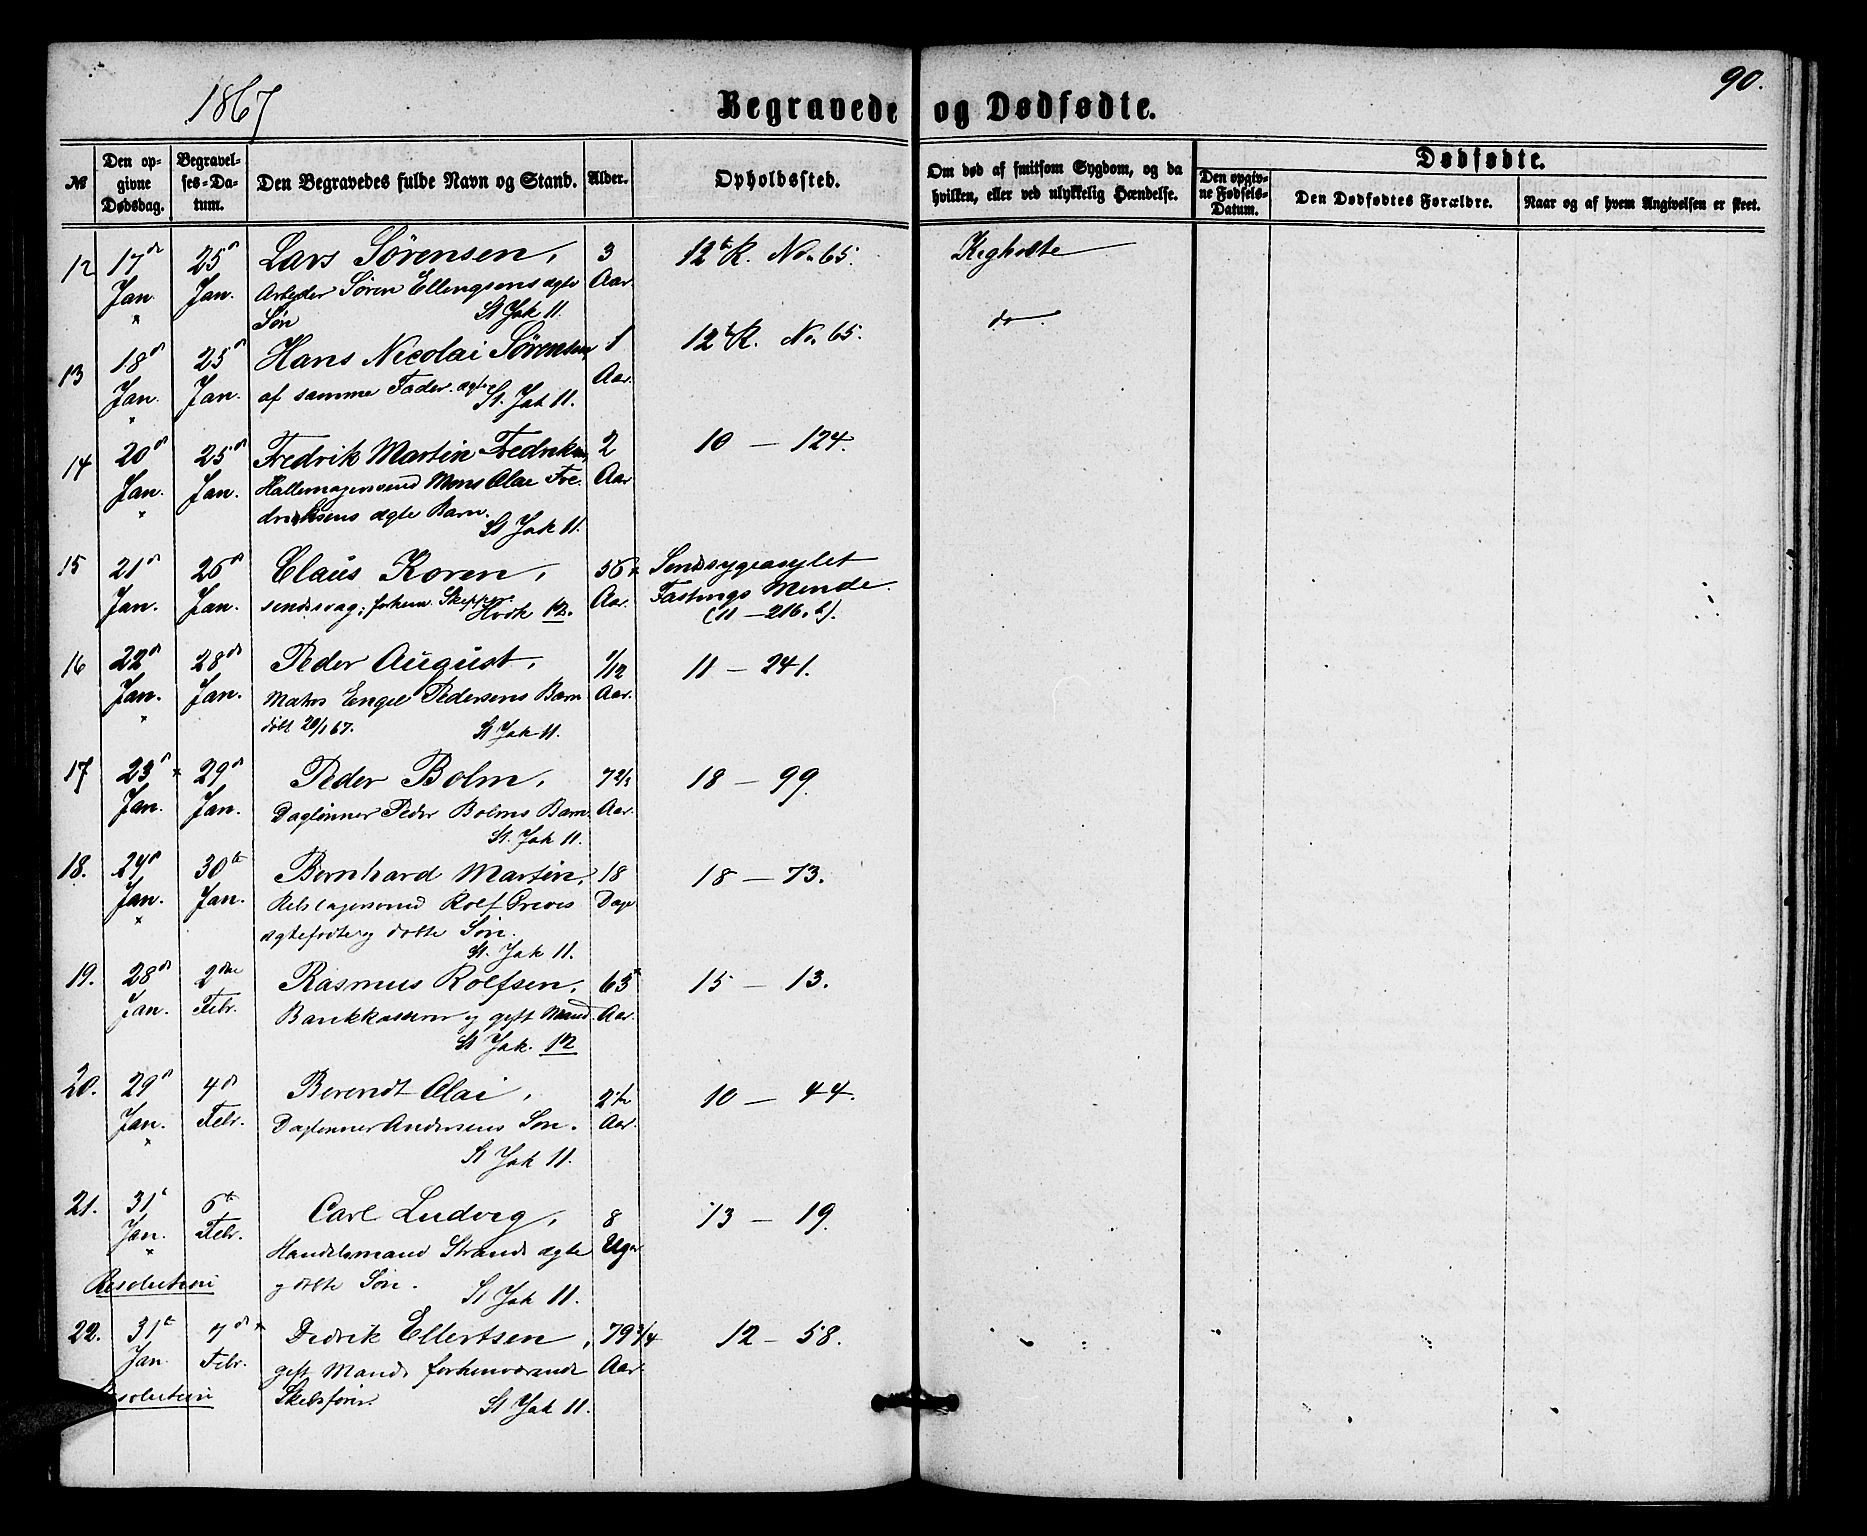 1867
Begravede og Dødfødte.
90.
№
Den opgivne Dødsdag.
Begravelses-Datum.
Den Begravedes fulde Navn og Stand.
Alder.
Opholdssted.
Om død af smitsom Sygdom, og da hvilken, eller ved ulykkelig Hændelse.
Dødfødte.
Den opgivne Fødsels-Datum.
Den Dødfødtes Forældre.
Naar og af hvem Angivelsen er skeet.
12 17de Jan. 25de Jan. Lars Sørensen, 3 Aar. 12te R. No. 65. Kighoste
Arbeider Søren Ellengsens ægte
Søn St Jak 11.
13 18de Jan. 25de Jan. Hans Nicolai Sørensen 1 Aar. 12te R. No. 65. do.
af samme Fader. ægte
St. Jak 11.
14 20de Jan. 25de Jan. Fredrik Martin Fredriksen, 2 Aar 10 — 124.
Mons Olai Fre-
driksens ægte Barn.
St Jak 11.
15 21de Jan. 26de Jan. Claus Koren, 56 Aar. Sindssygeasylet
sindssvag; forhen. Skipper. Fastings Minde.
Hvdk 12. (11 — 216. b).
16 22de Jan. 28de Jan. Peder August, 1/12 Aar. 11 — 241.
Matros Engel Pedersens Barn
døbt 20/1 67. St Jak 11.
17 23de Jan. 29de Jan. Peder Bolm, 7 2/3 Aar. 18 — 99.
Daglønner Peder Bolms Barn
St. Jak 11.
18. 24de Jan. 30te Jan. Bernhard Martin, 18 Dage 18 — 73.
Rebslagersvend Rolf
ægtefødte og døbte Søn.
St. Jak 11.
19. 28de Jan. 2den Febr. Rasmus Rolfsen, 63 Aar. 15 — 13.
Bankkasserer og gift Mand.
St Jak. 12
20. 29de Jan. 4de Febr. Berendt Olai, 2 1/2 Aar. 10 — 44.
Daglønner Andersens Søn.
St Jak 11.
21. 31te Jan. 6te Febr. Carl Ludvig, 8 Uger 13 — 19.
Handelsmand Strands ægte
Resolution og døbte Søn. St Jak 11.
22. 31te Jan. 7de Febr. Didrik Ellertsen, 79 3/4 Aar. 12 — 58.
gift Mand, forhenværende
Resolution Skibsfører. St Jak 11.